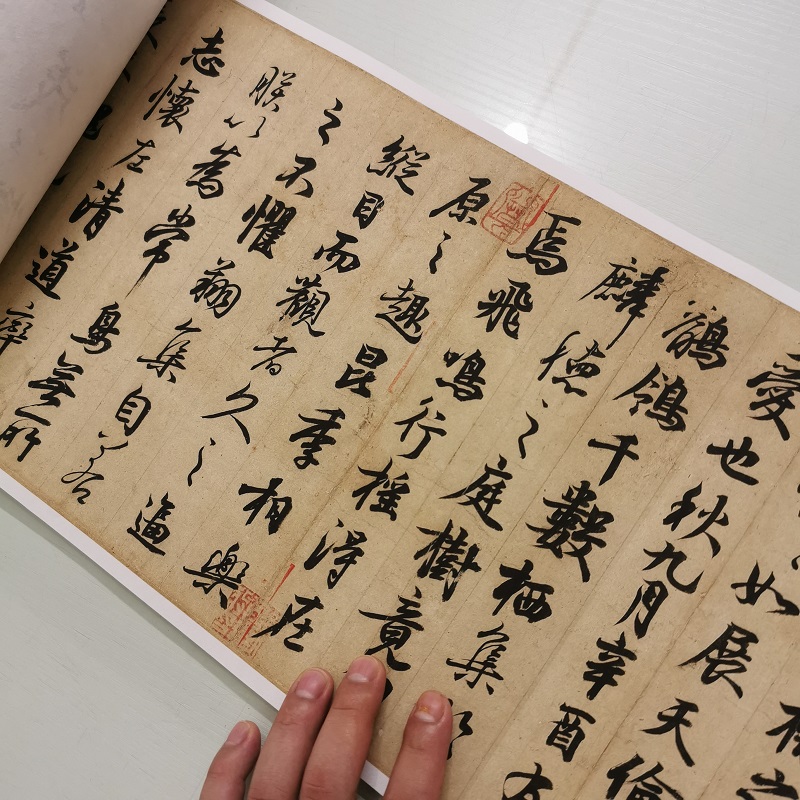 如展天倫
愛也秋九月辛酉有
鶺鴒千數栖集於
麟德之庭樹竟
焉飛鳴行搖得在
原之趣昆季相樂
縱目而觀者久之逼
之不懼翔集自若
朕以為常鳥無所
志懷左清道率